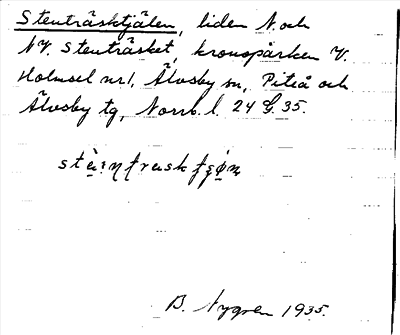 Stenträsktjälen, liden N. och
NV. Stenträsket, kronoparken V.
Holmsel nr 1, Älvsby sn, Piteå och
Älvsby tg, Norrb. l. 24 G. 35.
B. Nygren 1935.